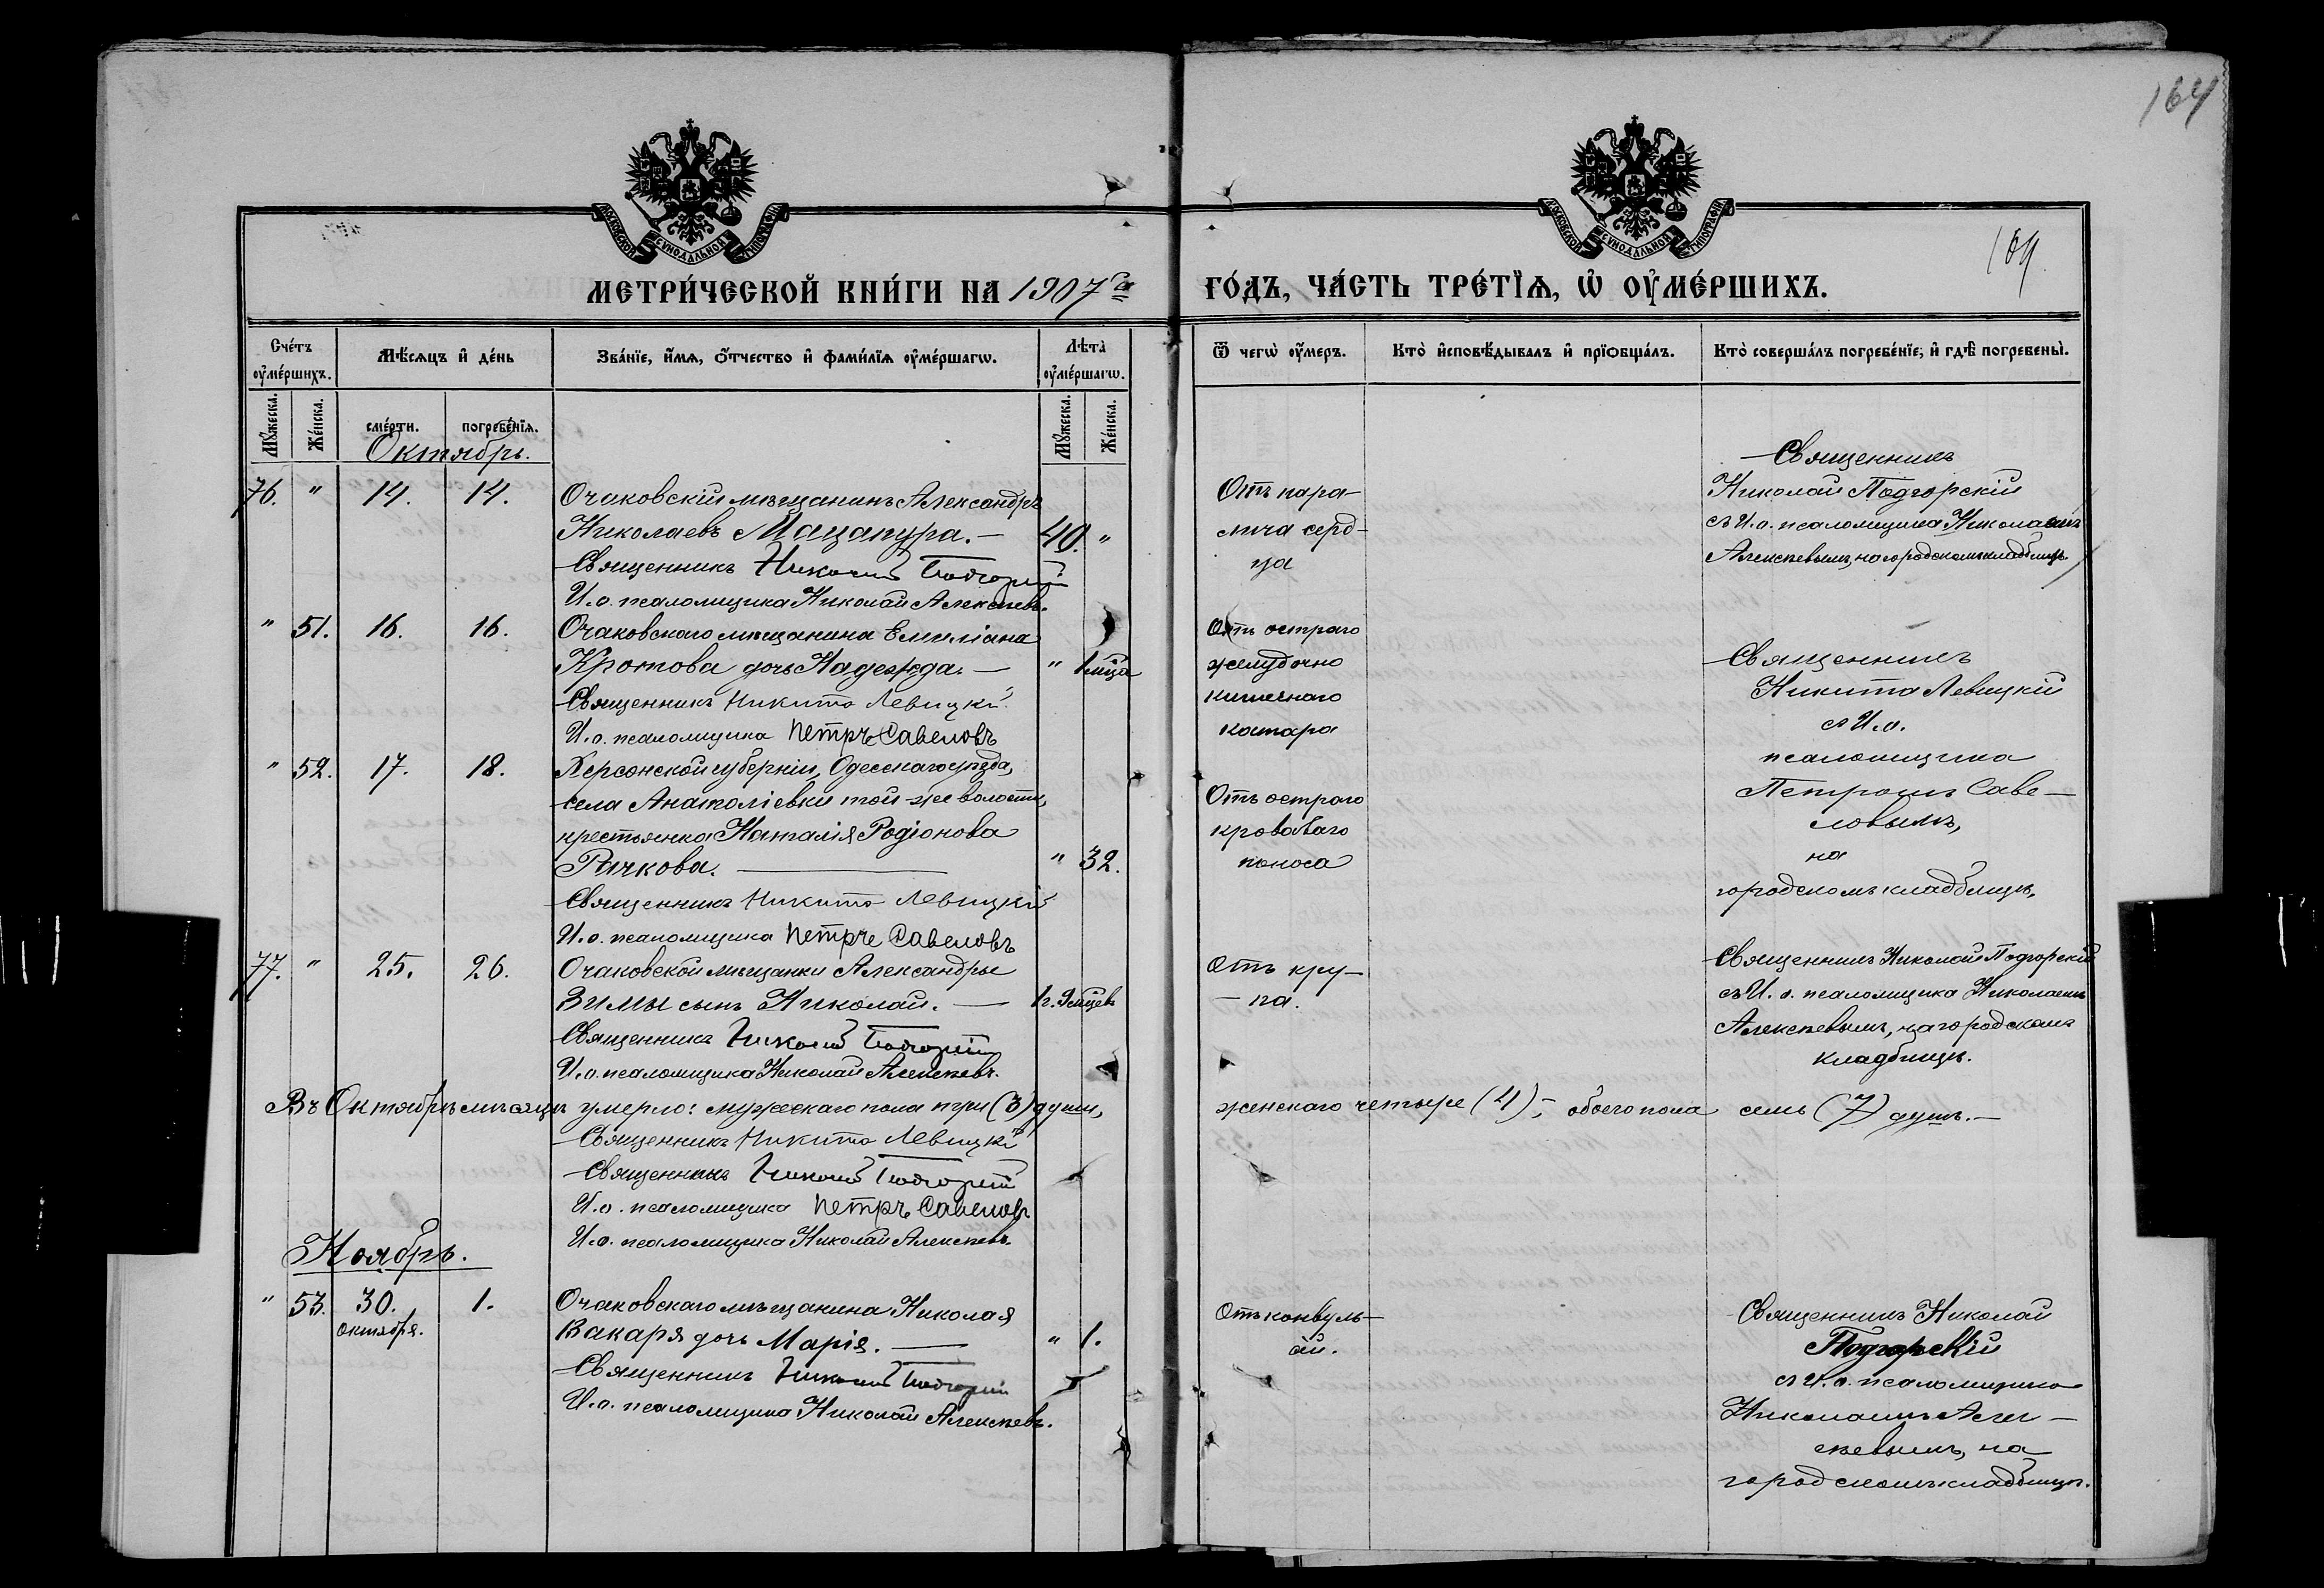 164
МОСКОВСКОЙ СУНОДАЛЬНОЙ ТИПОГРАФІИ
МОСКОВСКОЙ СУНОДАЛЬНОЙ ТИПОГРАФІИ
МЕТРИ́ЧЕСКОЙ КНИ́ГИ НА 1907й
ГО́ДЪ, ЧА́СТЬ ТРЕ́ТЇѦ, Ѡ҆ ОУ҆МЕ́РШИХЪ.
Сче́тъ оу҆ме́ршихъ.
Мѣ́сѧцъ и҆ де́нь
Зва́нїе, и҆́мѧ, ѻ҆́тчество и҆ фами́лїѧ оу҆ме́ршагѡ.
Лѣ́та оу҆ме́ршагѡ.
Ѿ чегѡ̀ оу҆́меръ.
Кто̀ и҆сповѣ́дывалъ и҆ прїѡбща́лъ.
Кто̀ соверша́лъ погребе́нїе; и҆ гдѣ̀ погребены̀.
Мꙋ́жеска.
Же́нска.
сме́рти.
погребе́нїѧ.
Мꙋ́жеска.
Же́нска.
Октябрь.
76. " 14. 14.
Очаковскій мѣщанинъ Александръ
Николаевъ Мацапура. — 40. "
Священникъ Николай Подгорскій
И. о. псаломщика Николай Алексѣевъ.
Отъ пара-
лича серд-
ца
Священникъ
Николай Подгорскій
съ И. о. псаломщика Николаемъ
Алексѣевымъ, на городскомъ кладбищѣ
" 51. 16. 16.
Очаковскаго мѣщанина Емиліана
Кротова дочь Надежда. — " 1 мѣца
Священникъ Никита Левицкій
И. о. псаломщика Петръ Савеловъ
Отъ остраго
желудочно
кишечнаго
катара
Священникъ
Никита Левицкій
съ И. о.
псаломщика
Петромъ Саве-
ловымъ,
на
городскомъ кладбищѣ,
" 52. 17. 18.
Херсонской губерніи, Одесскаго уѣзда,
села Анатоліевки той-же волости,
крестьянка Наталія Родіонова
Ричкова. — " 32.
Священникъ Никита Левицкій
И. о. псаломщика Петръ Савеловъ
Отъ остраго
кроваваго
поноса
77. " 25. 26.
Очаковской мѣщанки Александры
Зимы сынъ Николай. — 1 г. 9 мѣцевъ
Священникъ Николай Подгорскій
И. о. псаломщика Николай Алексѣевъ.
Отъ кру-
-па.
Священникъ Николай Подгорскій
съ И. о. псаломщика Николаемъ
Алексѣевымъ, на городскомъ
кладбищѣ.
Въ Октябрѣ мѣсяцѣ умерло: мужескаго пола три (3) души, женскаго четыре (4); обоего пола семь (7) душъ. —
Священникъ Никита Левицкій
Священникъ Николай Подгорскій
И. о. псаломщика Петръ Савеловъ
И. о. псаломщика Николай Алексѣевъ.
Ноябрь.
" 53. 30. октября. 1.
Очаковскаго мѣщанина Николая
Вакаря дочь Марія. — " 1.
Священникъ Николай Подгорскій
И. о. псаломщика Николай Алексѣевъ.
Отъ конвуль-
ій.
Священникъ Николай
Подгорскій
съ И. о. псаломщика
Николаемъ Алек-
сѣевымъ, на
городскомъ кладбищѣ.